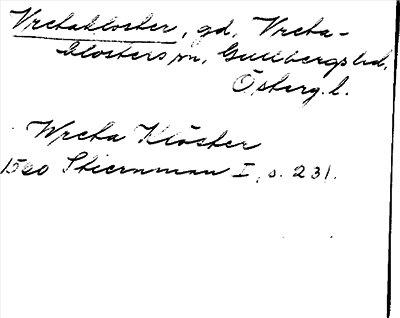 Vretakloster, gd, Vreta-
klosters sn, Gullbergs hd,
Österg. l.
Wreta Klöster
1520 Stiernman I, s. 231.